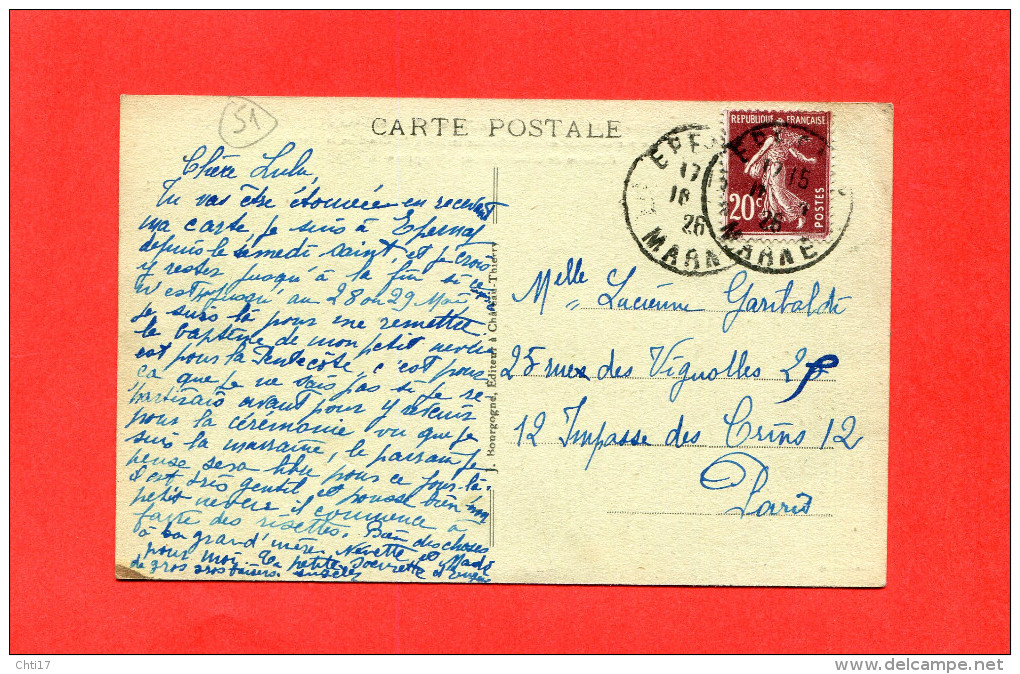 51
CARTE POSTALE
RÉPUBLIQUE FRANÇAISE
20c
POSTES
EPE
17 15
16
26
MARNE
Chère Lulu,
Tu vas être étonnée en recevant
ma carte, je suis à Epernay
depuis le samedi saint, et je crois
y rester jusqu'à la fin si ce
n'est jusqu'au 28 ou 29 Mai
je suis là pour me remettre
le baptême de mon petit neveu
est pour la Pentecôte, c'est pour
ça que je ne sais pas si je re-
partirais avant pour y revenir
pour la cérémonie vu que je
suis la marraine, le parrain je
pense sera libre pour ce jour-là.
il est très gentil et pousse bien mon
petit neveu il commence à
faire des risettes. Bien des choses
à ta grand'mère Nénette et Made
pour moi. Ta petite soeurette
de gros gros baisers.
J. Bourgogne, Editeur à Château-Thierry
Melle Lucienne Garibaldi
25 rue des Vignolles 25
12 Impasse des Crins 12
Paris
Chti17
http://www.delcampe.net